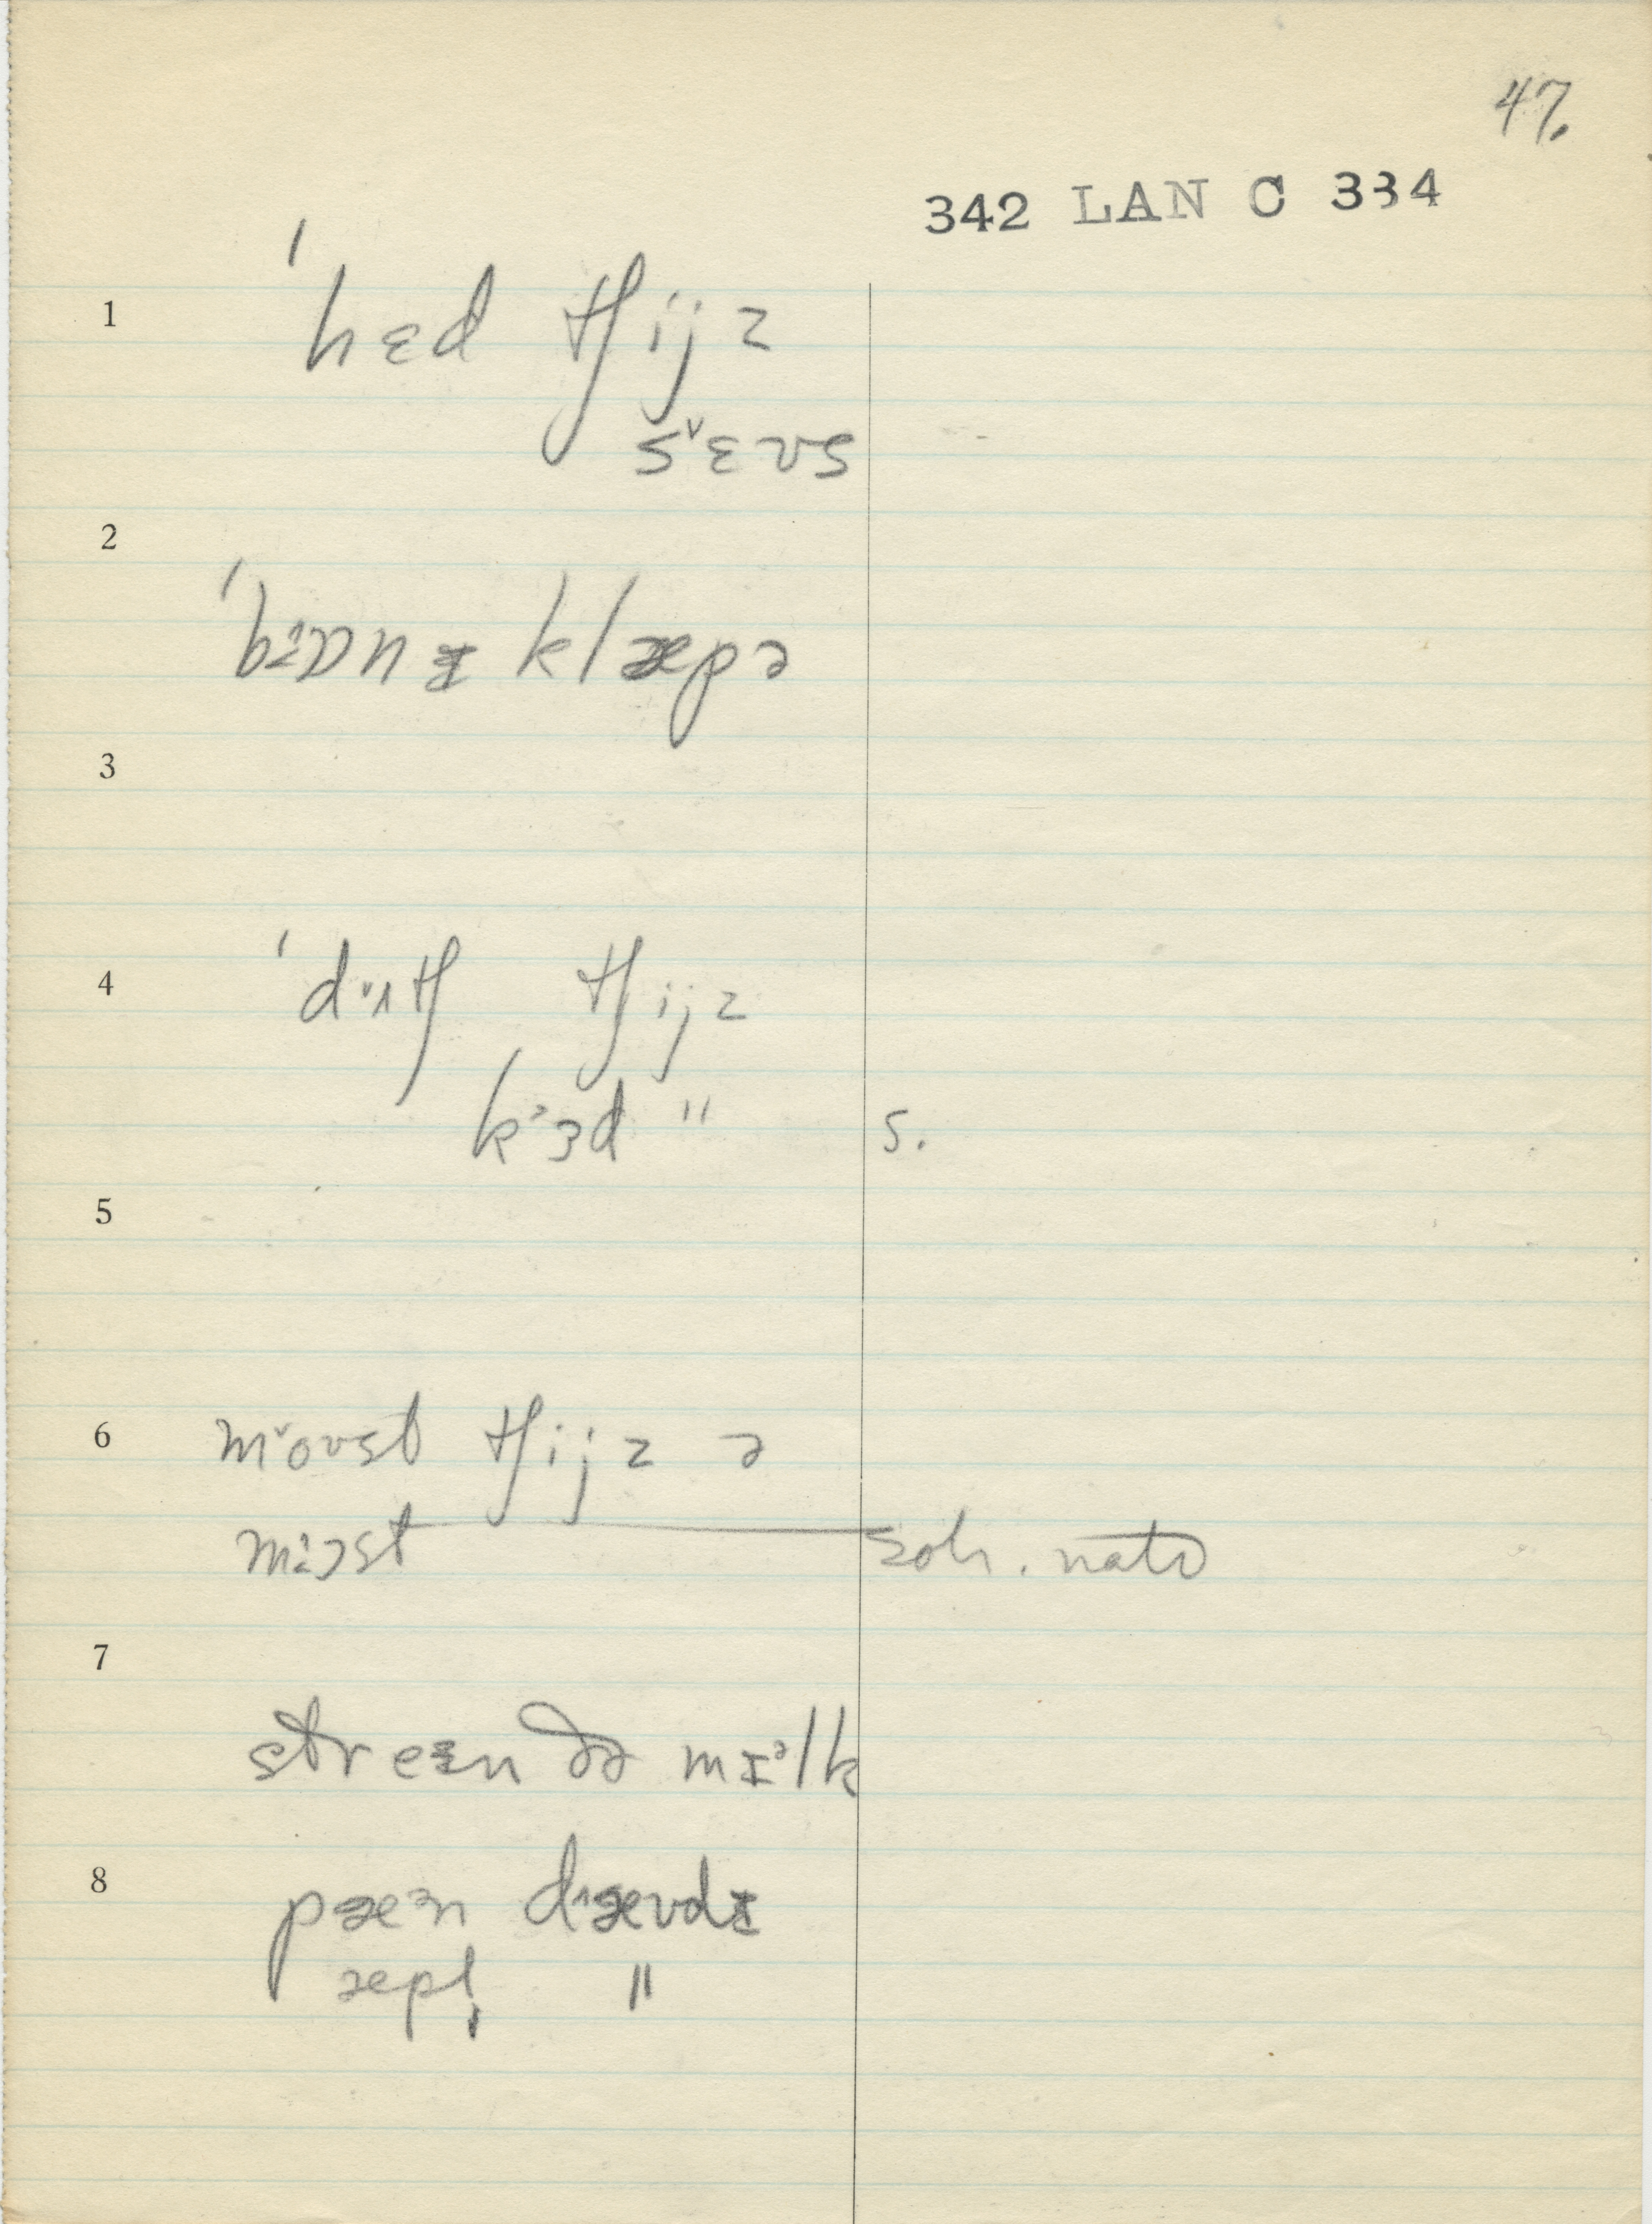 47.
342 LAN C 334
1 ˈhɛd tʃijz
s˅ɛʊs
2
ˈbɨɒnɪ klæpə
3
4 ˈd˅ʌtʃ tʃijz
kɜd " s.
5
6 m˅oʊst tʃijz ə
mɨɔst soh. nato
7
streɪn ðə mɪᵊlk
8 pæᵊn dæʊdɪ
æpḷ "